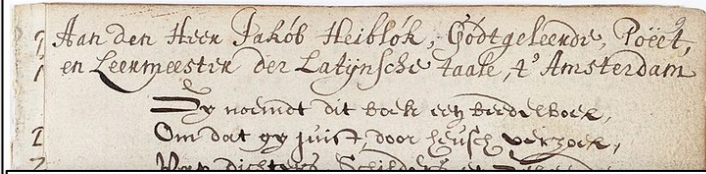 Aan den Heer Jakób Heiblók, Gódtgeleerde, Poëet,
en Leermeester der Latÿnsche taale, t' Amsterdam
Gy noemdt dit boek een beedelboek,
Om dat gy juist, door heusch verzoek,
Van Dichters, Schilders en